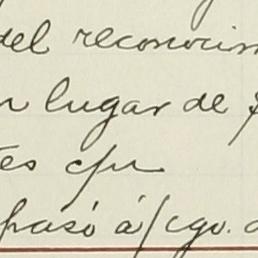 del reconocim
lugar de $
tes cpu
pasó á/cgo. d